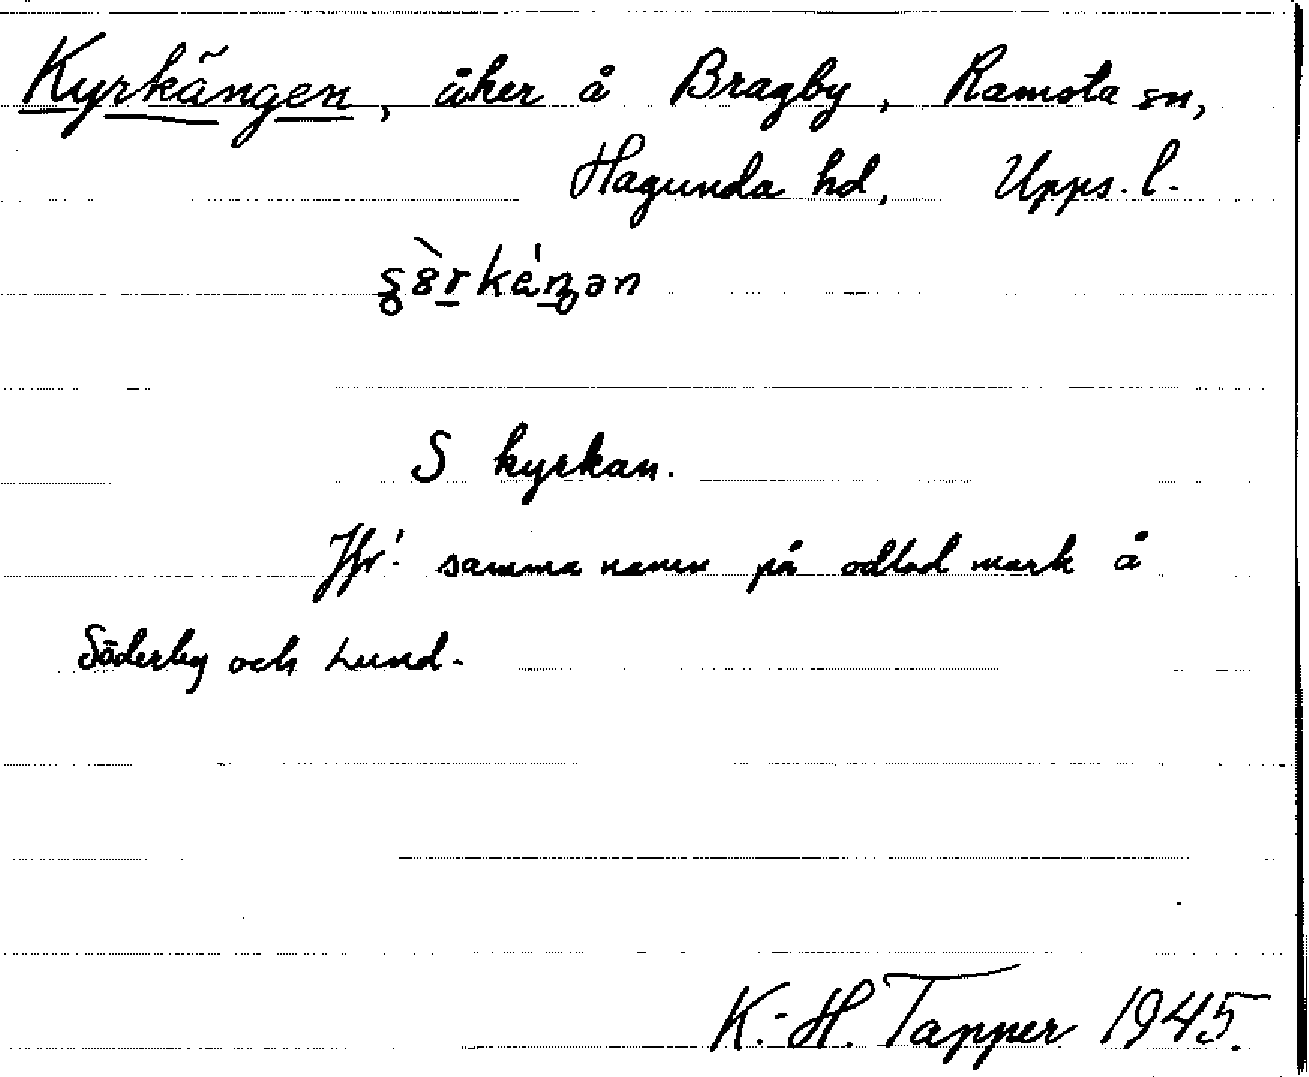 Kyrkängen, åker å Bragby, Ramsta sn,
Hagunda hd, Upps. l.
S kyrkan.
Jfr! samma namn på odlad mark å
Söderby och Lund.
K.-H. Tapper 1945.